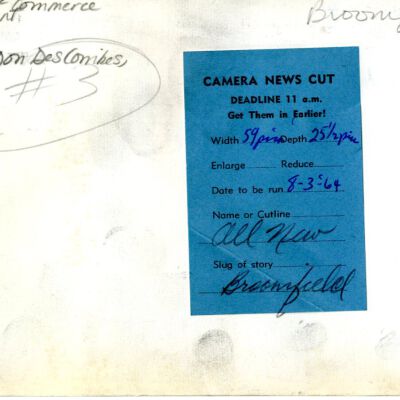 Commerce
Broom
Don DesCombes,
#3
CAMERA NEWS CUT
DEADLINE 11 a.m.
Get Them in Earlier!
Width 59 pica Depth 25 1/2 pica
Enlarge Reduce
Date to be run 8-3-64
Name or Cutline
All New
Slug of story
Broomfield